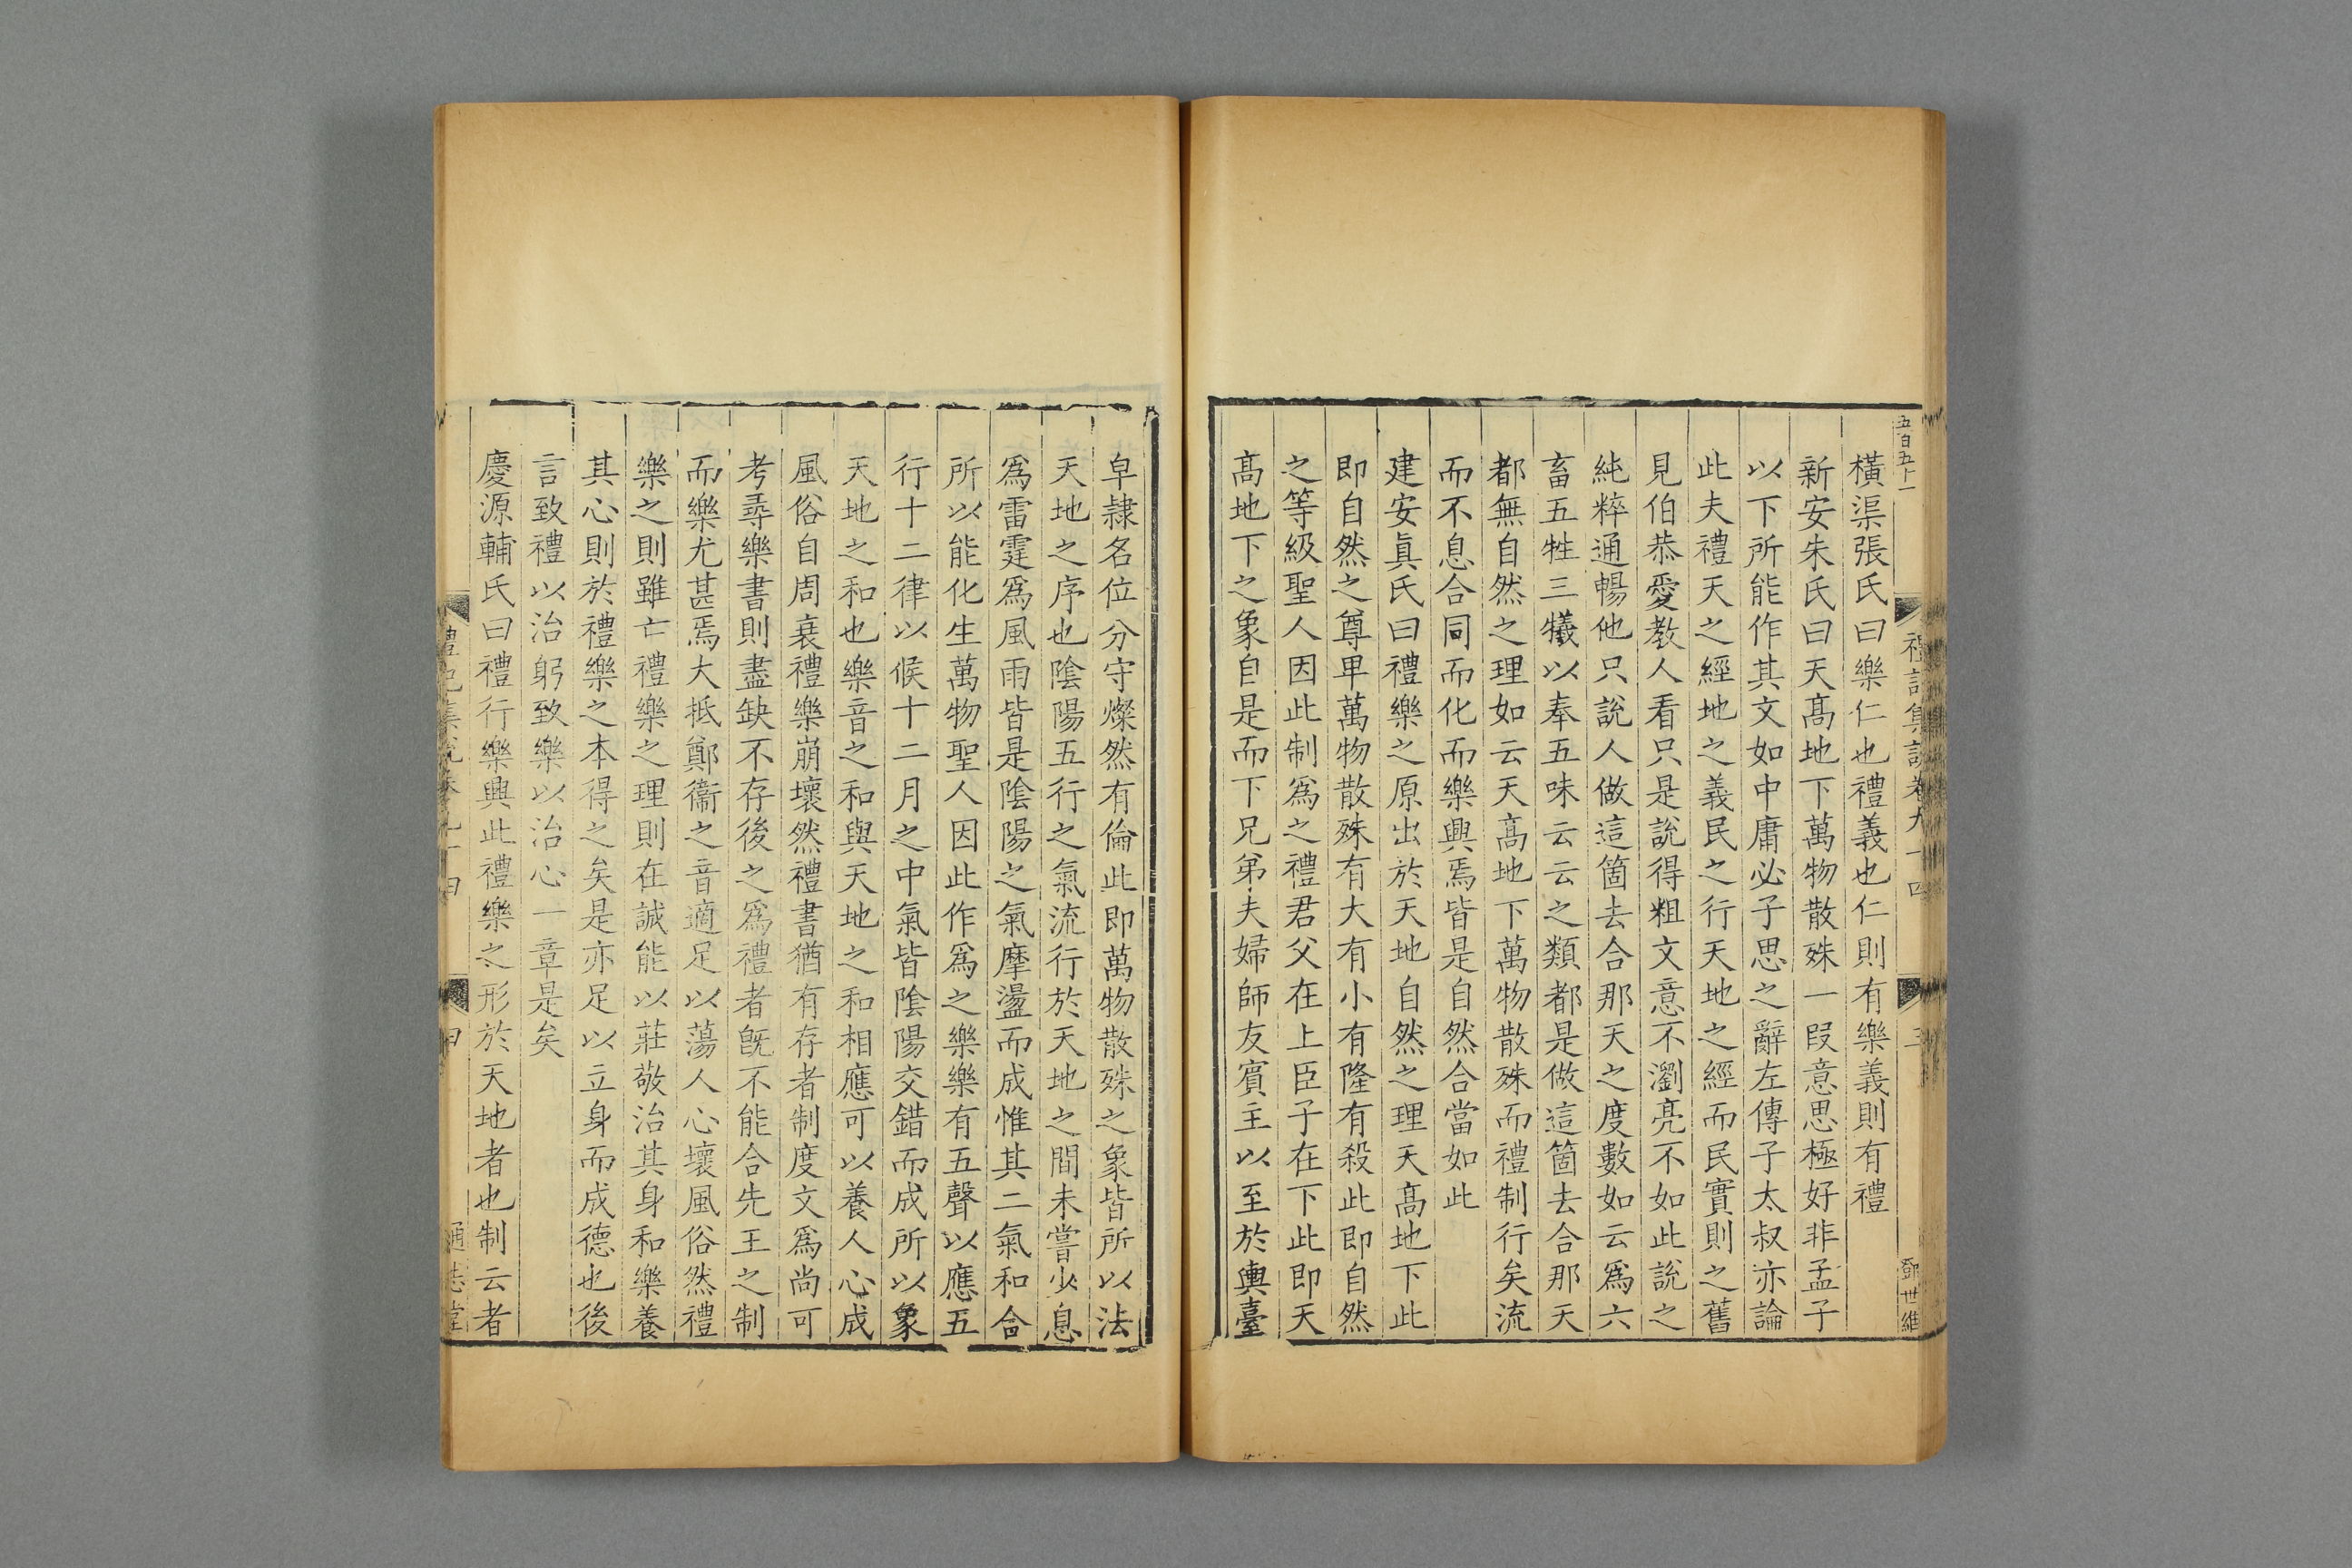 五百五十一
禮記集說卷九十四
三
鄧世維
橫渠張氏曰樂仁也禮義也仁則有樂義則有禮
新安朱氏曰天高地下萬物散殊一段意思極好非孟子
以下所能作其文如中庸必子思之辭左傳子太叔亦論
此夫禮天之經地之義民之行天地之經而民實則之舊
見伯恭愛教人看只是說得粗文意不瀏亮不如此說之
純粹通暢他只說人做這箇去合那天之度數如云爲六
畜五牲三犧以奉五味云云之類都是做這箇去合那天
都無自然之理如云天高地下萬物散殊而禮制行矣流
而不息合同而化而樂興焉皆是自然合當如此
建安眞氏曰禮樂之原出於天地自然之理天高地下此
即自然之尊卑萬物散殊有大有小有隆有殺此即自然
之等級聖人因此制爲之禮君父在上臣子在下此即天
高地下之象自是而下兄弟夫婦師友賓主以至於輿臺
皁隸名位分守燦然有倫此即萬物散殊之象皆所以法
天地之序也陰陽五行之氣流行於天地之間未嘗少息
爲雷霆爲風雨皆是陰陽之氣摩盪而成惟其二氣和合
所以能化生萬物聖人因此作爲之樂樂有五聲以應五
行十二律以候十二月之中氣皆陰陽交錯而成所以象
天地之和也樂音之和與天地之和相應可以養人心成
風俗自周衰禮樂崩壞然禮書猶有存者制度文爲尚可
考尋樂書則盡缺不存後之爲禮者旣不能合先王之制
而樂尤甚焉大抵鄭衞之音適足以蕩人心壞風俗然禮
樂之則雖亡禮樂之理則在誠能以莊敬治其身和樂養
其心則於禮樂之本得之矣是亦足以立身而成德也後
言致禮以治躬致樂以治心一章是矣
慶源輔氏曰禮行樂興此禮樂之形於天地者也制云者
禮記集說卷
通志堂